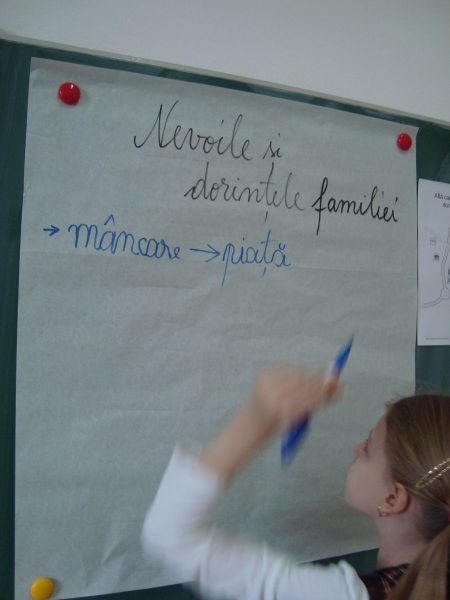 Nevoile si
dorințele familiei
→ mâncare → piață